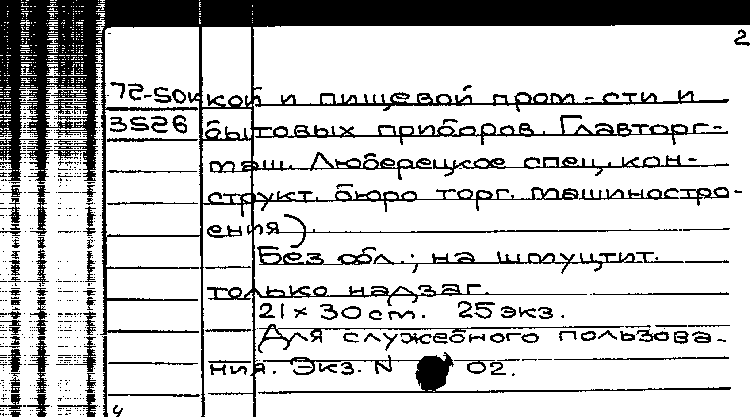 2
72-50к кой и пищевой пром-сти и
3526 бытовых приборов. Главторг-
маш. Люберецкое спец. кон-
структ. бюро торг. машиностро-
ения).
Без обл.; на шмуцтит.
только надзаг.
21 x 30 cm. 25 экз.
Для служебного пользова-
ния. Экз. N 02.
4